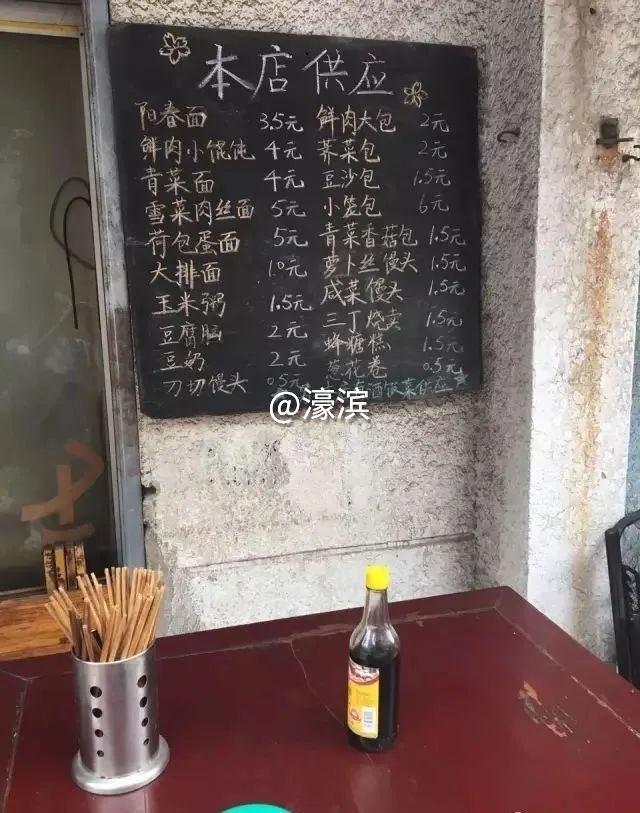 本店供应
阳春面 3.5元
鲜肉小馄饨 4元
青菜面 4元
雪菜肉丝面 5元
荷包蛋面 5元
大排面 10元
玉米粥 1.5元
豆腐脑 2元
豆奶 2元
刀切馒头 0.5元
鲜肉大包 2元
荠菜包 2元
豆沙包 1.5元
小笼包 6元
青菜香菇包 1.5元
萝卜丝馒头 1.5元
咸菜馒头 1.5元
三丁烧卖 1.5元
蜂糖糕 1.5元
葱花卷 0.5元
酒饭菜供应
@濠滨